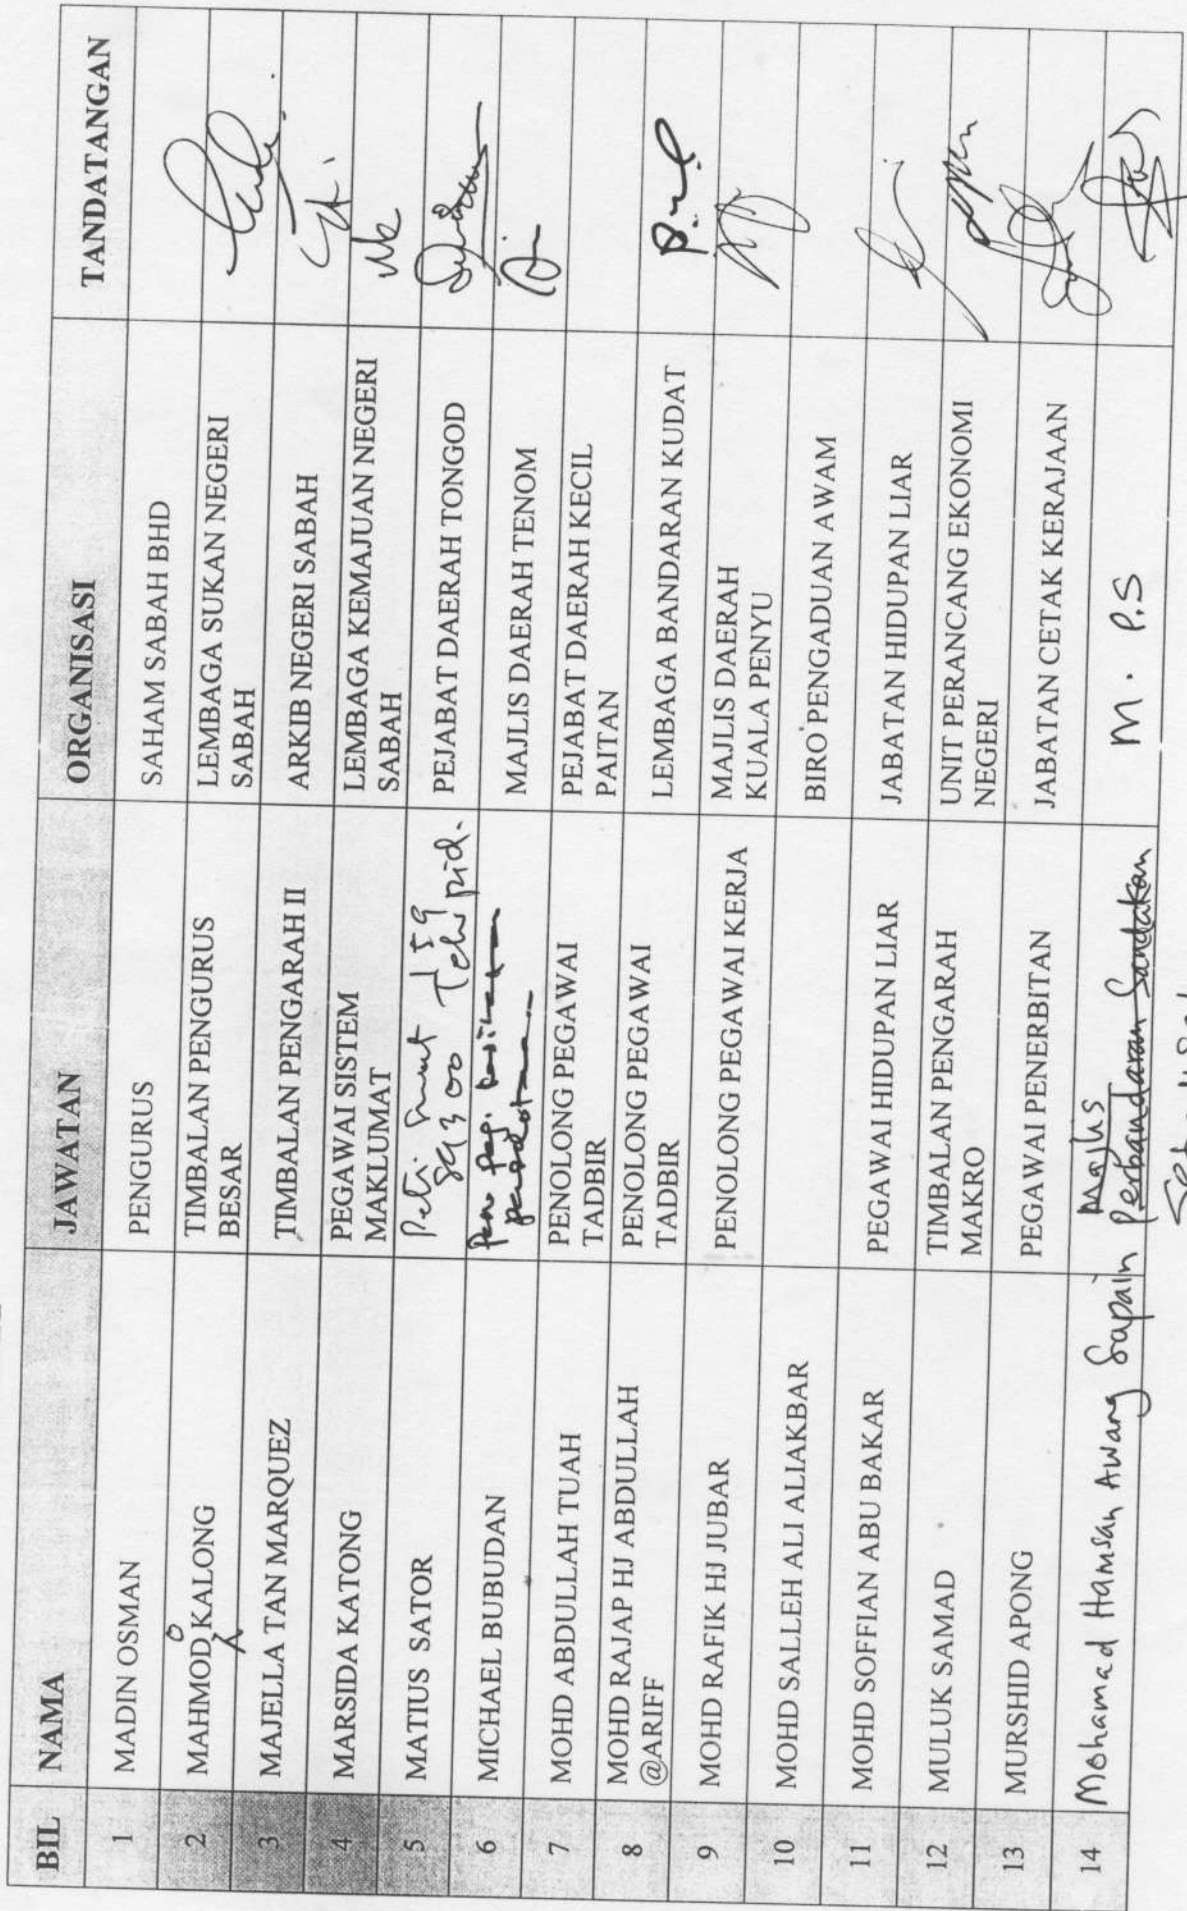 BIL NAMA JAWATAN ORGANISASI TANDATANGAN
1 MADIN OSMAN PENGURUS SAHAM SABAH BHD
2 MAHMOD KALONG TIMBALAN PENGURUS LEMBAGA SUKAN NEGERI
BESAR SABAH
3 MAJELLA TAN MARQUEZ TIMBALAN PENGARAH II ARKIB NEGERI SABAH
4 MARSIDA KATONG PEGAWAI SISTEM LEMBAGA KEMAJUAN NEGERI
MAKLUMAT SABAH
5 MATIUS SATOR Peti surat PEJABAT DAERAH TONGOD
6 MICHAEL BUBUDAN MAJLIS DAERAH TENOM
7 MOHD ABDULLAH TUAH PENOLONG PEGAWAI PEJABAT DAERAH KECIL
TADBIR PAITAN
8 MOHD RAJAP HJ ABDULLAH PENOLONG PEGAWAI LEMBAGA BANDARAN KUDAT
@ARIFF TADBIR
9 MOHD RAFIK HJ JUBAR PENOLONG PEGAWAI KERJA MAJLIS DAERAH
KUALA PENYU
10 MOHD SALLEH ALI ALIAKBAR BIRO PENGADUAN AWAM
11 MOHD SOFFIAN ABU BAKAR PEGAWAI HIDUPAN LIAR JABATAN HIDUPAN LIAR
12 MULUK SAMAD TIMBALAN PENGARAH UNIT PERANCANG EKONOMI
MAKRO NEGERI
13 MURSHID APONG PEGAWAI PENERBITAN JABATAN CETAK KERAJAAN
14 Mohamad Hamsan Awang Sapain Majlis M. P.S
Perbandaran Sandakan